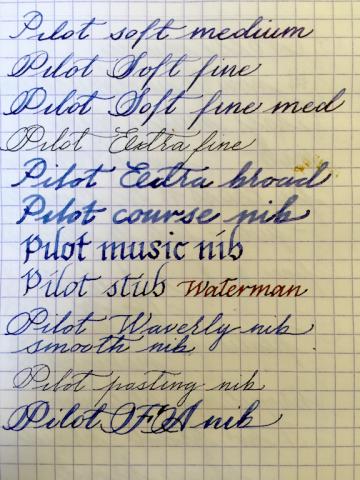 Pilot soft medium
Pilot Soft fine
Pilot Soft fine med
Pilot Extra fine
Pilot Extra broad
Pilot course nib
Pilot music nib
Pilot stub Waterman
Pilot Waverly nib
smooth nib
Pilot posting nib
Pilot FA nib